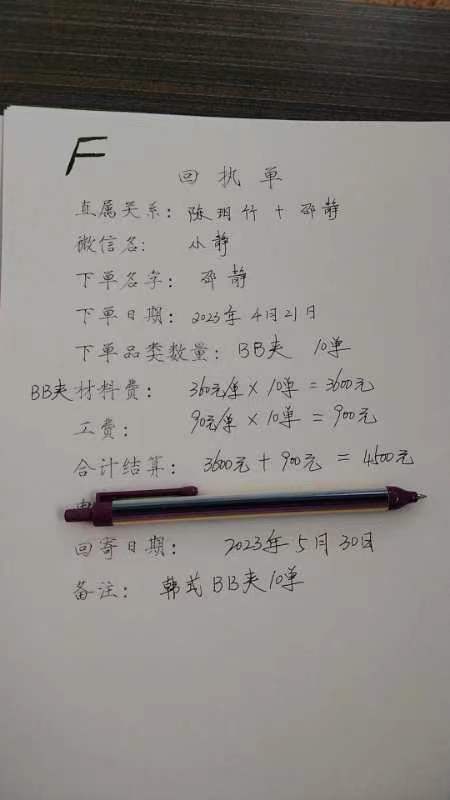 F
回执单
直属关系：陈玥竹 + 邵静
微信名： 小静
下单名字： 邵静
下单日期：2023年4月21日
下单品类数量：BB夹 10单
BB夹材料费： 360元/单×10单=3600元
工费： 90元/单×10单=900元
合计结算： 3600元+900元=4500元
回寄日期： 2023年5月30日
备注： 韩式BB夹10单